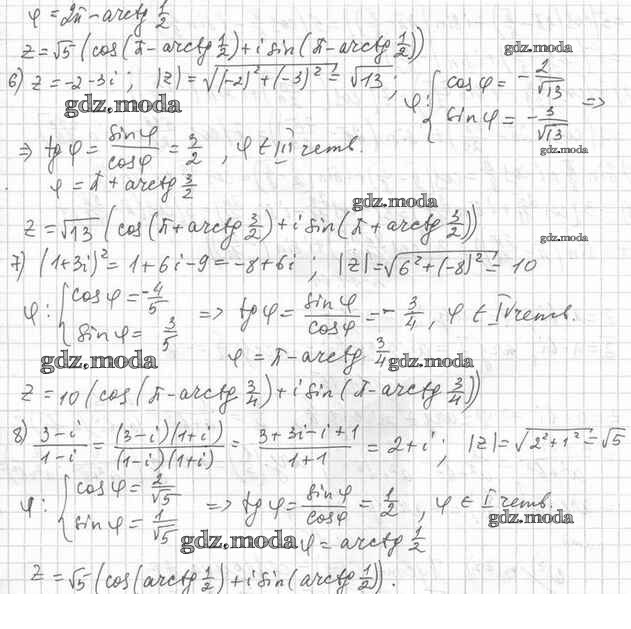 φ = 2π - arctg 1/2
z = √5 (cos(π - arctg 1/2) + i sin(π - arctg 1/2))
gdz.moda
6) z = -2-3i ; |z| = √((-2)²+(-3)²) = √13 ; φ: { cos φ = -2/√13 sin φ = -3/√13 =>
gdz.moda
gdz.moda
=> tg φ = sin φ/cos φ = 3/2 , φ ∈ III четв.
φ = π + arctg 3/2
gdz.moda
z = √13 (cos(π + arctg 3/2) + i sin(π + arctg 3/2))
gdz.moda
7) (1+3i)² = 1+6i-9 = -8+6i ; |z| = √(6²+(-8)²) = 10
φ: { cos φ = -4/5 sin φ = 3/5 => tg φ = sin φ/cos φ = - 3/4 , φ ∈ IV четв.
gdz.moda
φ = π - arctg 3/4
gdz.moda
z = 10 (cos(π - arctg 3/4) + i sin(π - arctg 3/4))
8) 3-i/1-i = (3-i)(1+i)/(1-i)(1+i) = 3+3i-i+1/1+1 = 2+i ; |z| = √(2²+1²) = √5
φ: { cos φ = 2/√5 sin φ = 1/√5 => tg φ = sin φ/cos φ = 1/2 , φ ∈ I четв.
gdz.moda
gdz.moda
φ = arctg 1/2
z = √5 (cos(arctg 1/2) + i sin(arctg 1/2)).